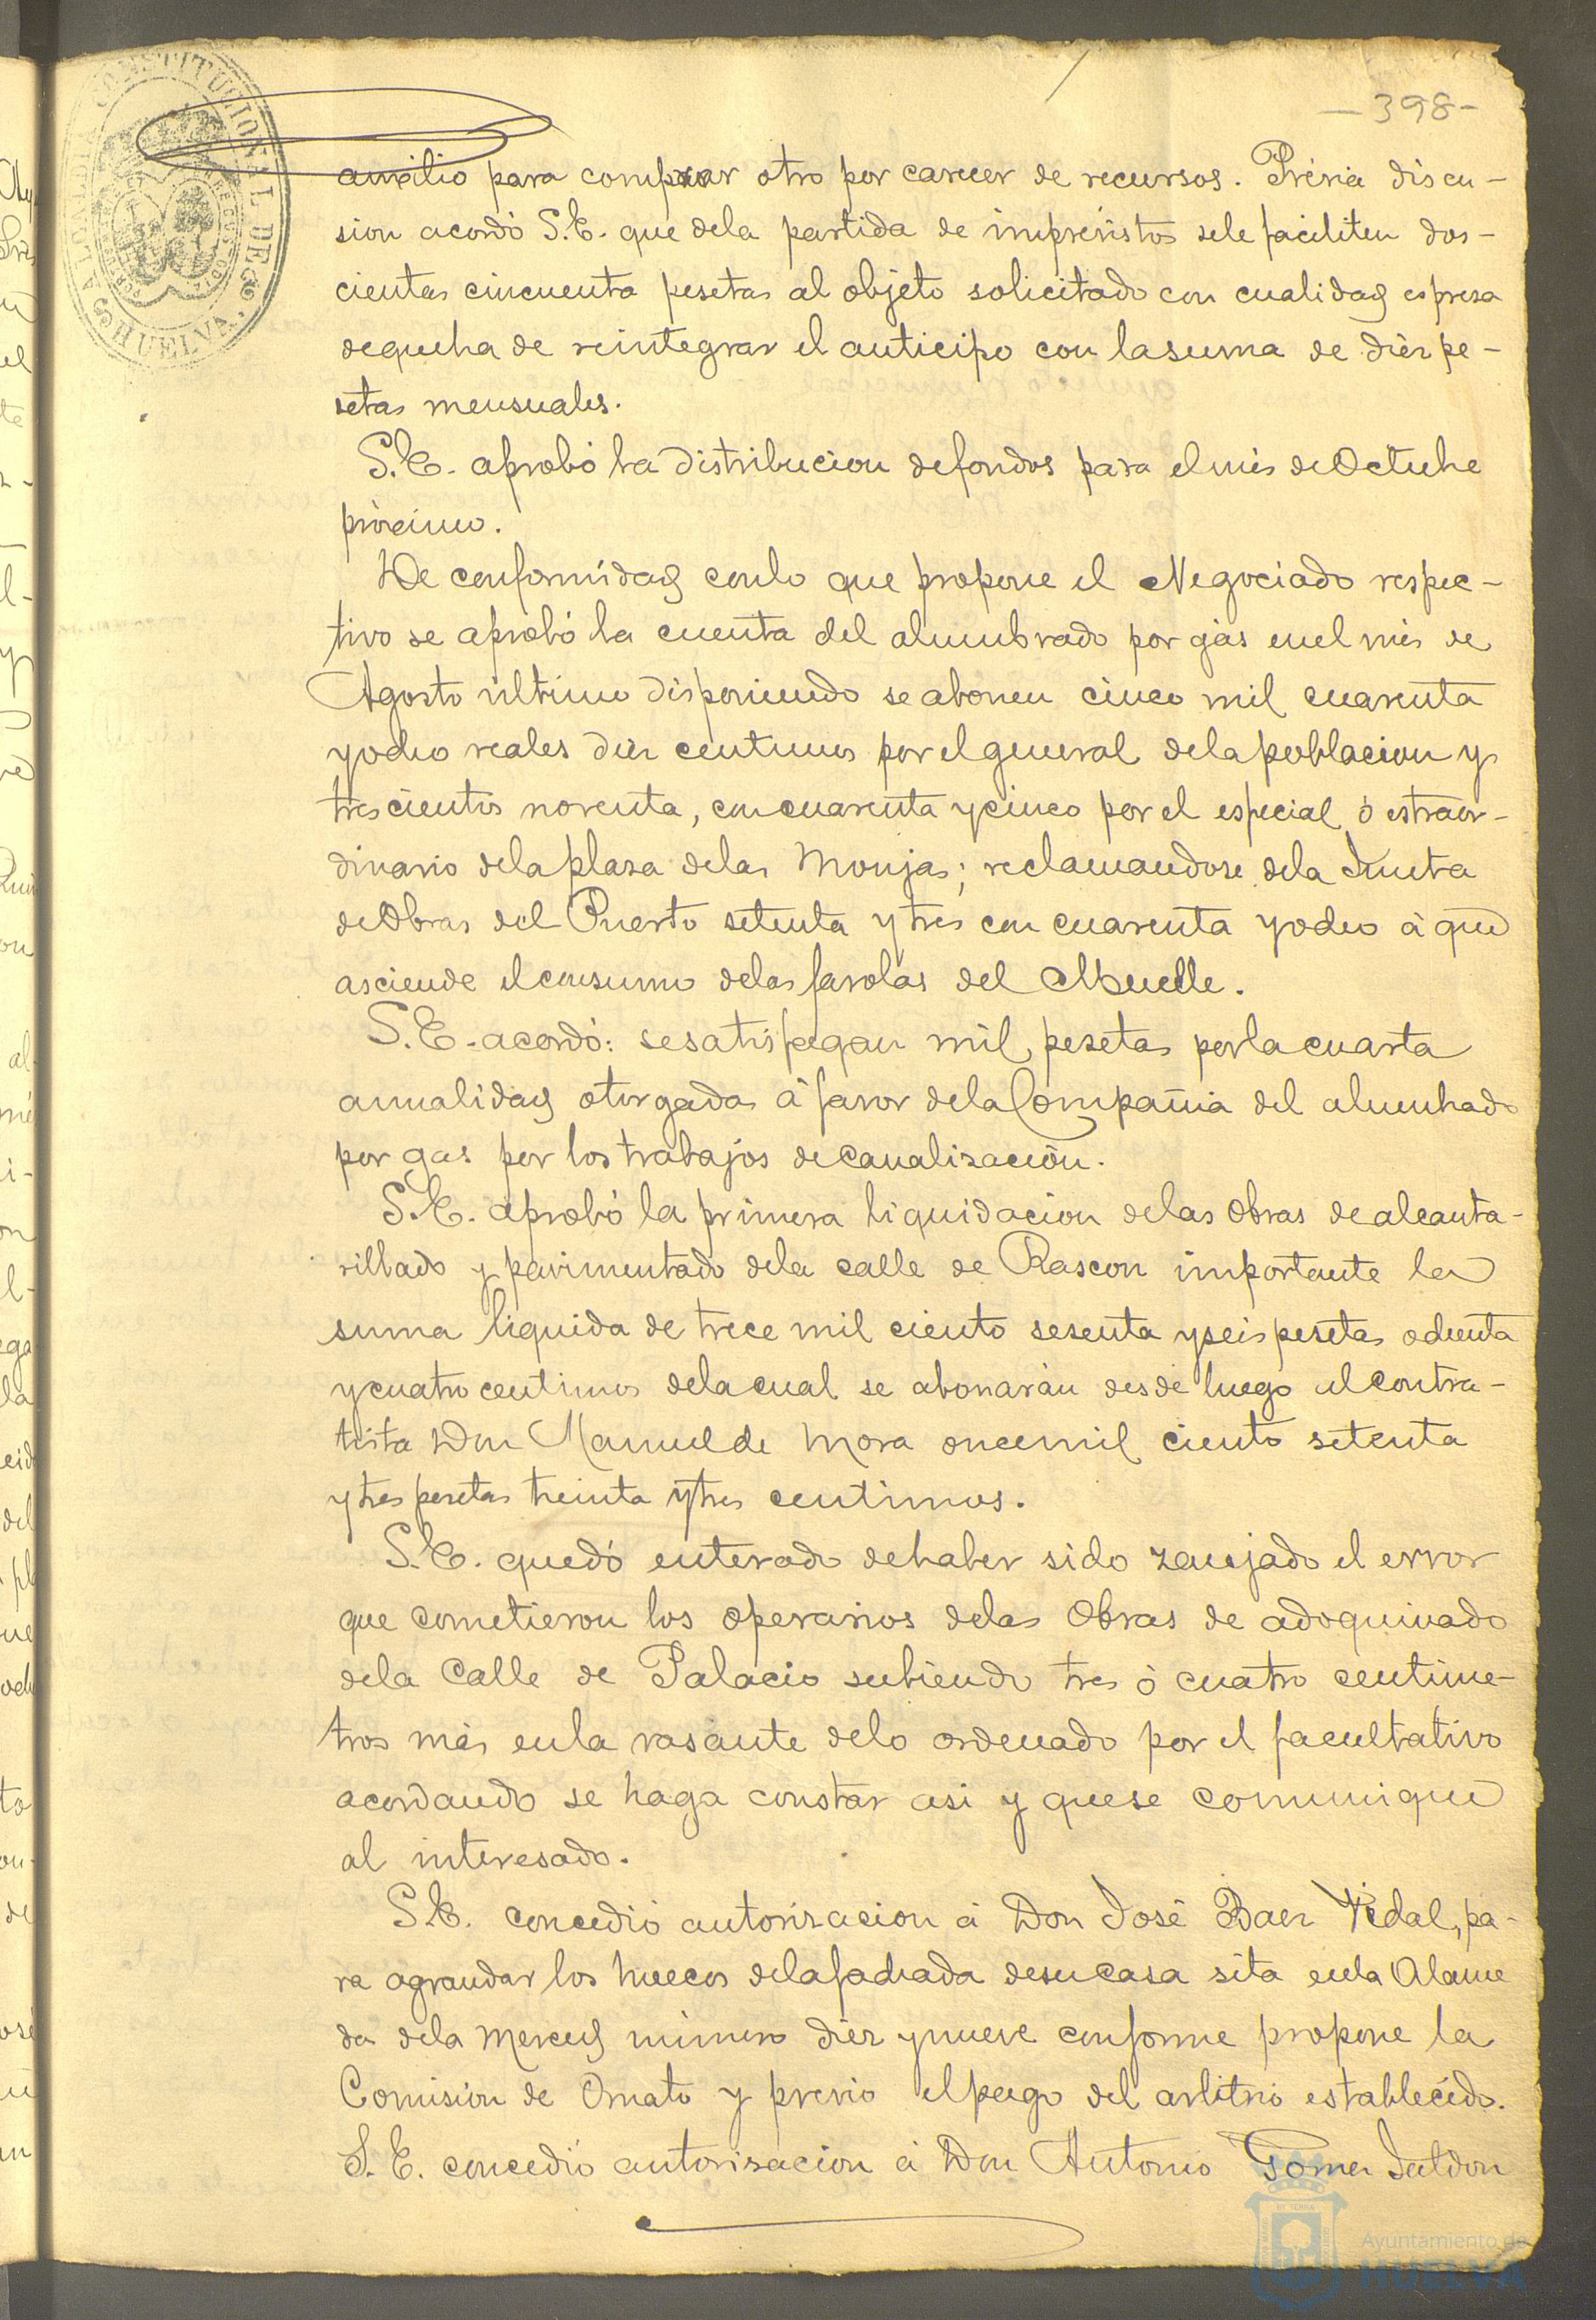 -398-
ALCALDIA CONSTITUCIONAL DE HUELVA.
auxilio para comprar otro por carecer de recursos. Prévia discu-
sion acordó S.E. que dela partida de imprevistos sele faciliten dos-
cientas cincuenta pesetas al objeto solicitado con cualidad espresa
dequeha de reintegrar el anticipo con lasuma de diez pe-
setas mensuales.
S.E. aprobó la distribucion defondos para elmes deOctubre
próximo.
De conformidad conlo que propone el Negociado respec-
tivo se aprobó la cuenta del alumbrado por gas enel mes de
Agosto último disponiendo se abonen cinco mil cuarenta
yocho reales diez centimos por elgeneral delapoblacion y
trescientos noventa, concuarenta ycinco por el especial ó estraor-
dinario delaplaza delas Monjas; reclamandose dela Junta
deObras del Puerto setenta ytres con cuarenta yocho á que
asciende elconsumo delasfarolas del Muelle.
S.E. acordó: sesatisfagan mil pesetas porlacuarta
anualidad otorgada á favor delaCompañia del alumbrado
por gas por los trabajos decanalizacion.
S.E. aprobó la primera liquidacion delas Obras dealcanta-
rillado y pavimentado dela calle de Rascon importante la
suma liquida de trece mil ciento sesenta yseis pesetas ochenta
ycuatro centimos delacual se abonarán desde luego alcontra-
tista Don Manuel de Mora oncemil ciento setenta
ytres pesetas treinta ytres centimos.
S.E. quedó enterado dehaber sido zanjado el error
que cometieron los operarios delas Obras de adoquinado
dela Calle de Palacio subiendo tres ó cuatro centime-
tros más enla rasante delo ordenado por el facultativo
acordando se haga constar asi y quese comunique
al interesado.
S.E. concedió autorizacion á Don José Baez Vidal, pa-
ra agrandar los huecos delafachada desucasa sita enla Alame
da dela Merced número diez ynueve conforme propone la
Comision de Ornato y previo elpago del arbitrio establecido.
S.E. concedió autorizacion á Don Antonio Gomez
Ayuntamiento de
HUELVA